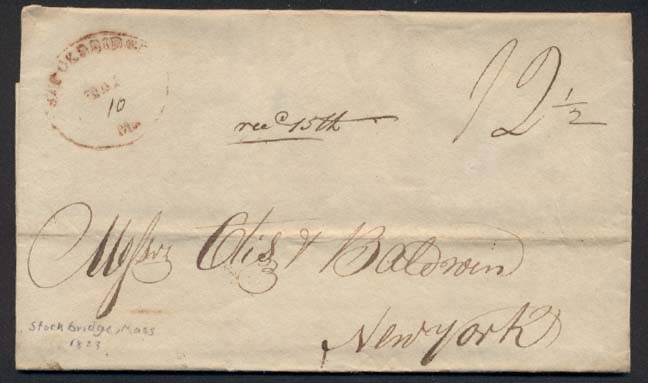 STOCKBRIDGE
10
Ms
12 1/2
recd 15th
Messrs Otis & Baldwin
New York
Stockbridge, Mass
1823